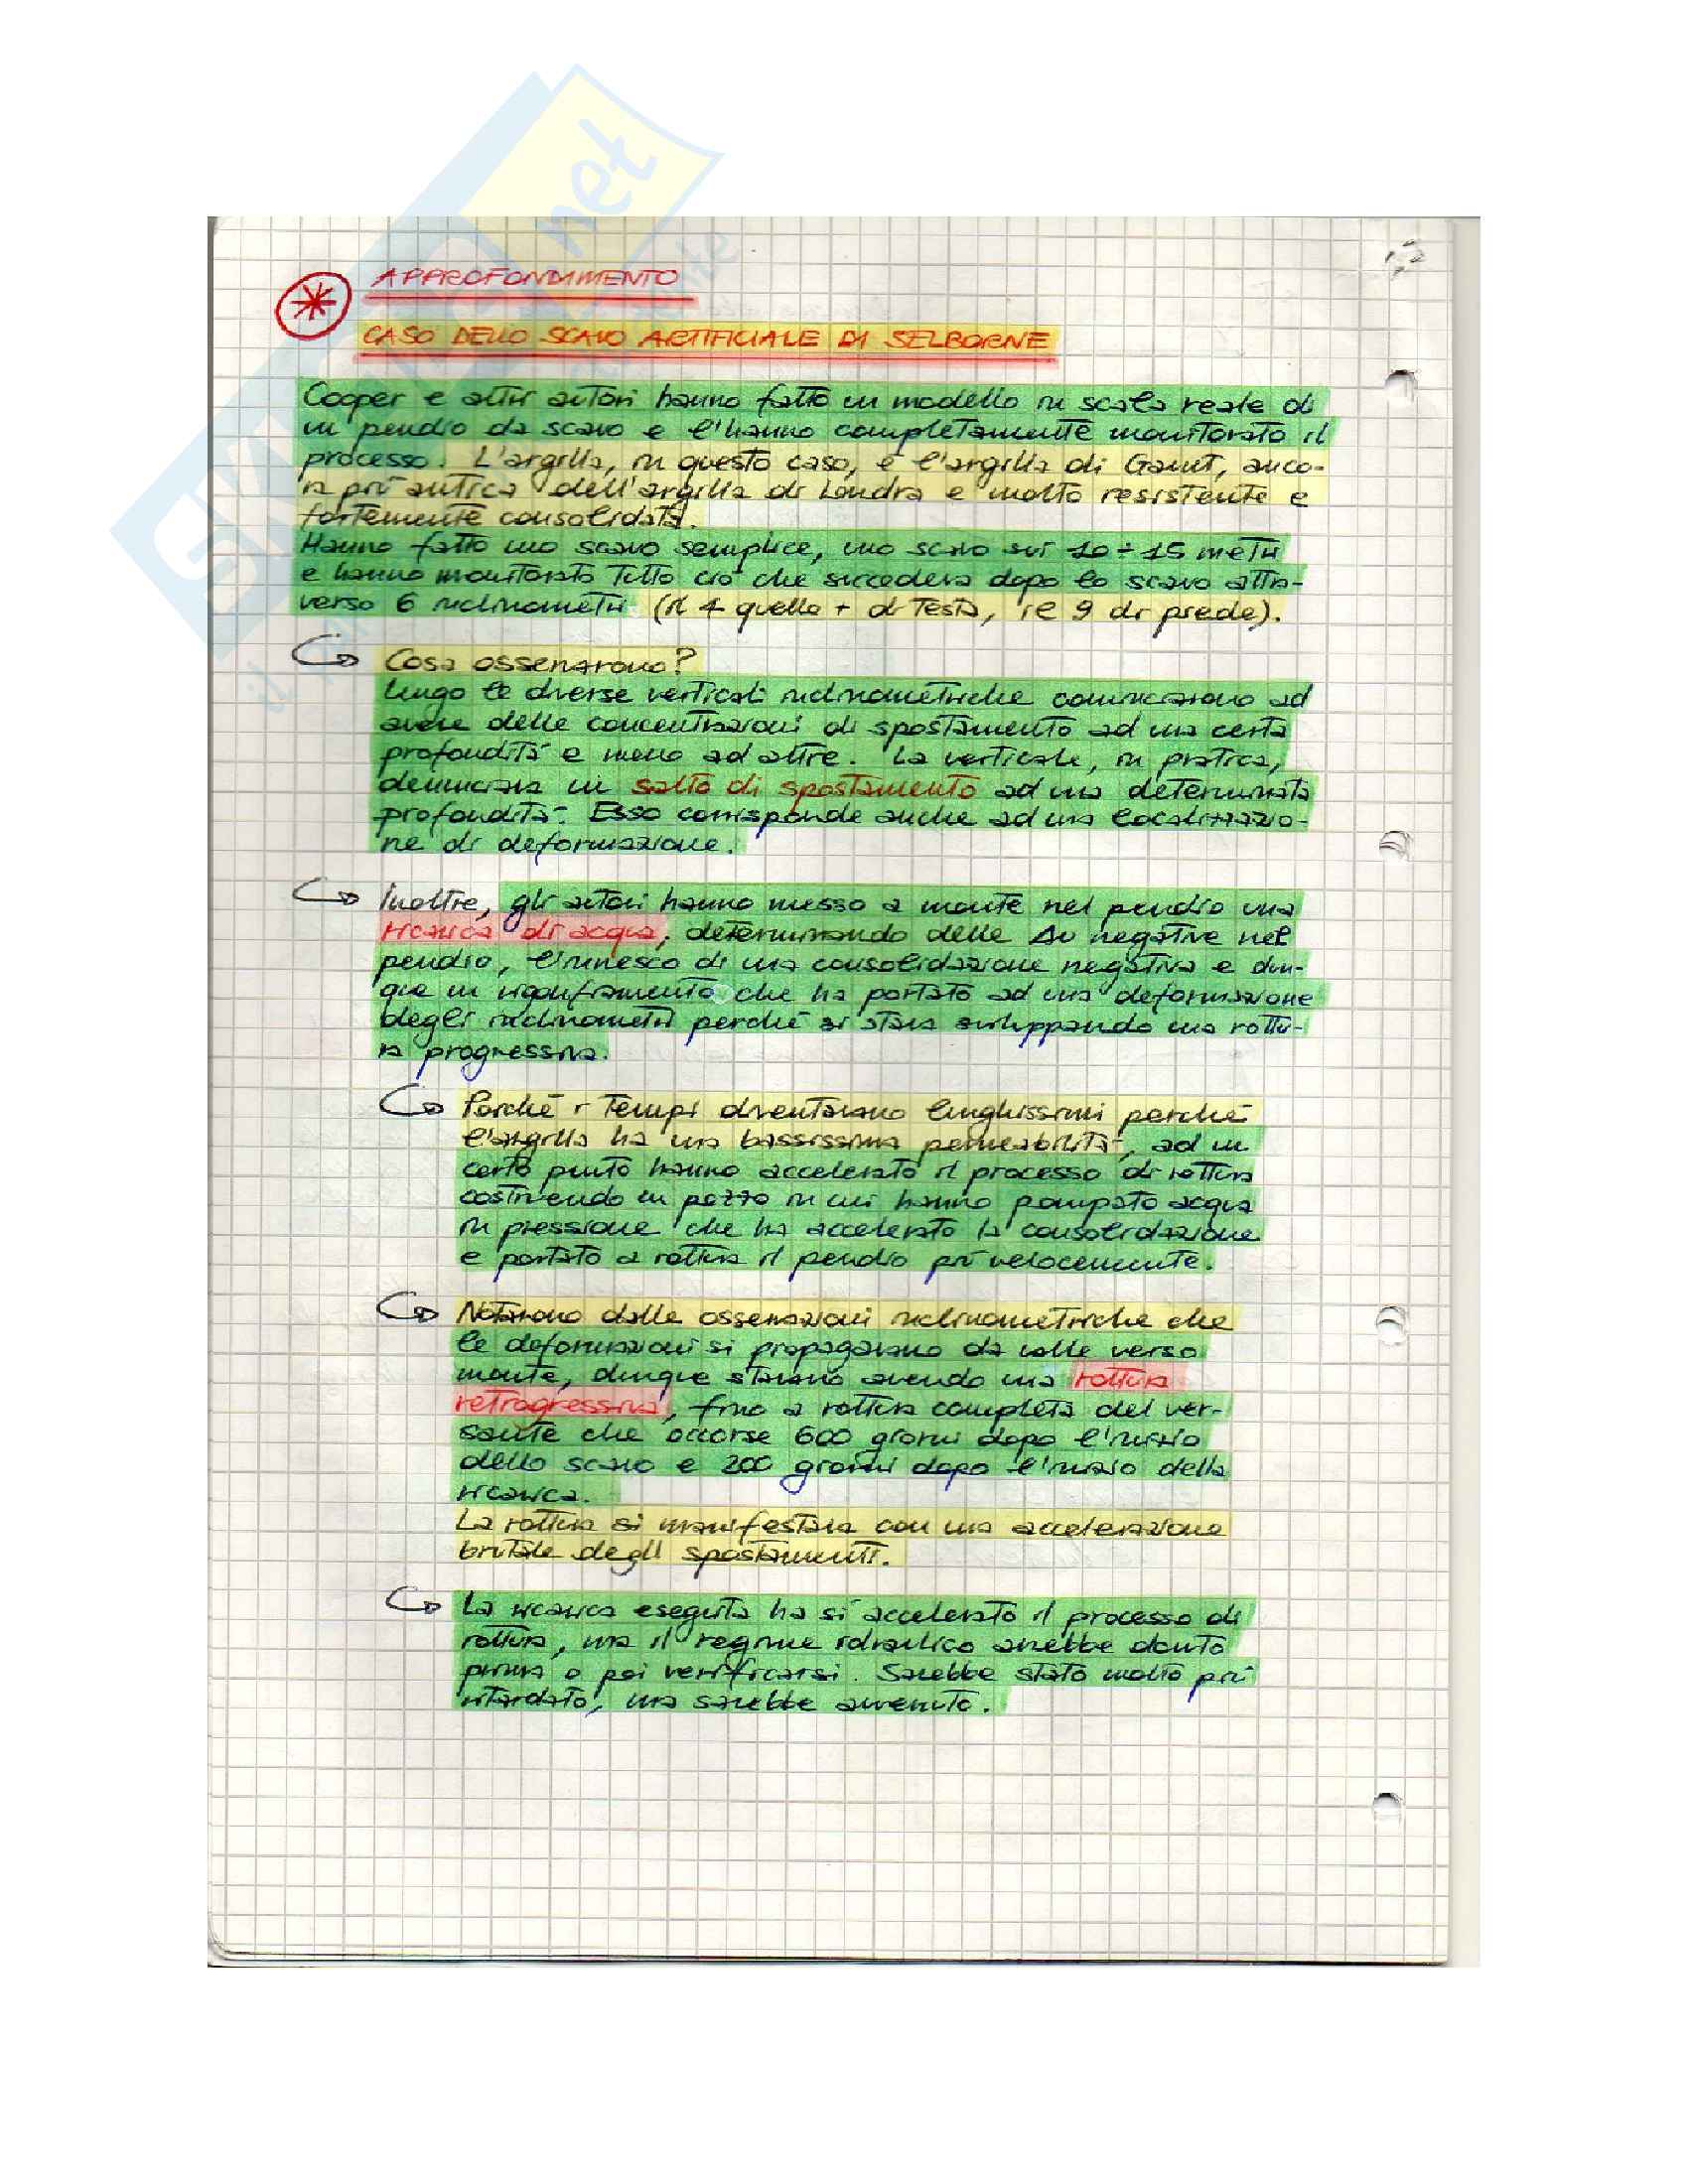 APPROFONDIMENTO
CASO DELLO SCAVO ARTIFICIALE DI SELBORNE
Cooper e altri autori hanno fatto un modello in scala reale di
un pendio da scavo e l'hanno completamente monitorato il
processo. L'argilla, in questo caso, è l'argilla di Gault, anco-
ra più antica dell'argilla di Londra e molto resistente e
fortemente consolidata.
Hanno fatto uno scavo semplice, uno scavo sui 10 ÷ 15 metri
e hanno monitorato tutto ciò che succedeva dopo lo scavo attra-
verso 6 inclinometri (il 4 quello + di testa, il 9 di piede).
Cosa osservarono?
Lungo le diverse verticali inclinometriche cominciarono ad
avere delle concentrazioni di spostamento ad una certa
profondità e meno ad altre. La verticale, in pratica,
denunciava un salto di spostamento ad una determinata
profondità. Esso corrisponde anche ad una localizzazio-
ne di deformazione.
Inoltre, gli autori hanno messo a monte nel pendio una
ricarica di acqua, determinando delle Δu negative nel
pendio, l'innesco di una consolidazione negativa e dun-
que un rigonfiamento che ha portato ad una deformazione
degli inclinometri perché si stava sviluppando una rottu-
ra progressiva.
Poiché i tempi diventavano lunghissimi perché
l'argilla ha una bassissima permeabilità, ad un
certo punto hanno accelerato il processo di rottura
costruendo un pozzo in cui hanno pompato acqua
in pressione che ha accelerato la consolidazione
e portato a rottura il pendio più velocemente.
Notarono dalle osservazioni inclinometriche che
le deformazioni si propagavano da valle verso
monte, dunque stavano avendo una rottura
retrogressiva, fino a rottura completa del ver-
sante che occorse 600 giorni dopo l'inizio
dello scavo e 200 giorni dopo l'inizio della
ricarica.
La rottura si manifestava con una accelerazione
brutale degli spostamenti.
La ricarica eseguita ha sì accelerato il processo di
rottura, ma il regime idraulico avrebbe dovuto
prima o poi verificarsi. Sarebbe stato molto più
ritardato, ma sarebbe avvenuto.